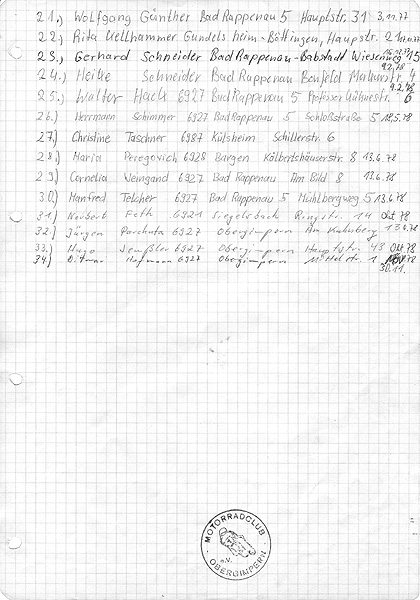 21.) Wolfgang Günther Bad Rappenau 5 Hauptstr. 31 3.11.77
22.) Rita Uellhammer Gundelsheim-Böttingen, Haupstr. 2
23.) Gerhard Schneider Bad Rappenau-Babstadt Wiesenweg 15
24.) Heike Schneider Bad Rappenau Bonfeld 4
9.2.78
25.) Walter Hack 6927 Bad Rappenau 5 Professor Kühnestr. 6
26.) Herrmann Schimmer 6927 Bad Rappenau 5 Schloßstraße 5 18.5.78
27.) Christine Taschner 6987 Külsheim Schillerstr. 6
28.) Maria Peregovich 6928 Bargen Kälbertshäuserstr. 8 13.6.78
29.) Cornelia Weingand 6927 Bad Rappenau Am Bild 8 13.6.78
30.) Manfred Telcher 6927 Bad Rappenau 5 Mühlbergweg 5 13.6.78
31.) Norbert Feth 6921 Siegelsbach Ringstr. 14 Okt 78
32.) Jürgen Parchuta 6927 Obergimpern Am 13.6.78
33.) Hugo 6927 Obergimpern Hauptstr. 43 Okt 78
34.) Ditmar Hofmann 6927 Obergimpern Mittelstr. 1
30.11.
MOTORRADCLUB
e.V.
OBERGIMPERN